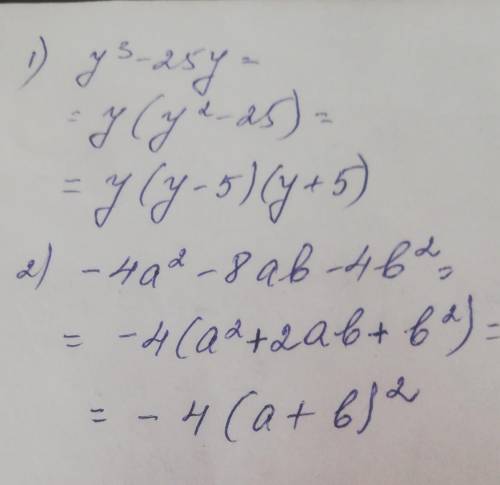 1) y³ - 25y =
= y (y² - 25) =
= y (y - 5) (y + 5)
2) - 4a² - 8ab - 4b² =
= - 4 (a² + 2ab + b²) =
= - 4 (a + b)²